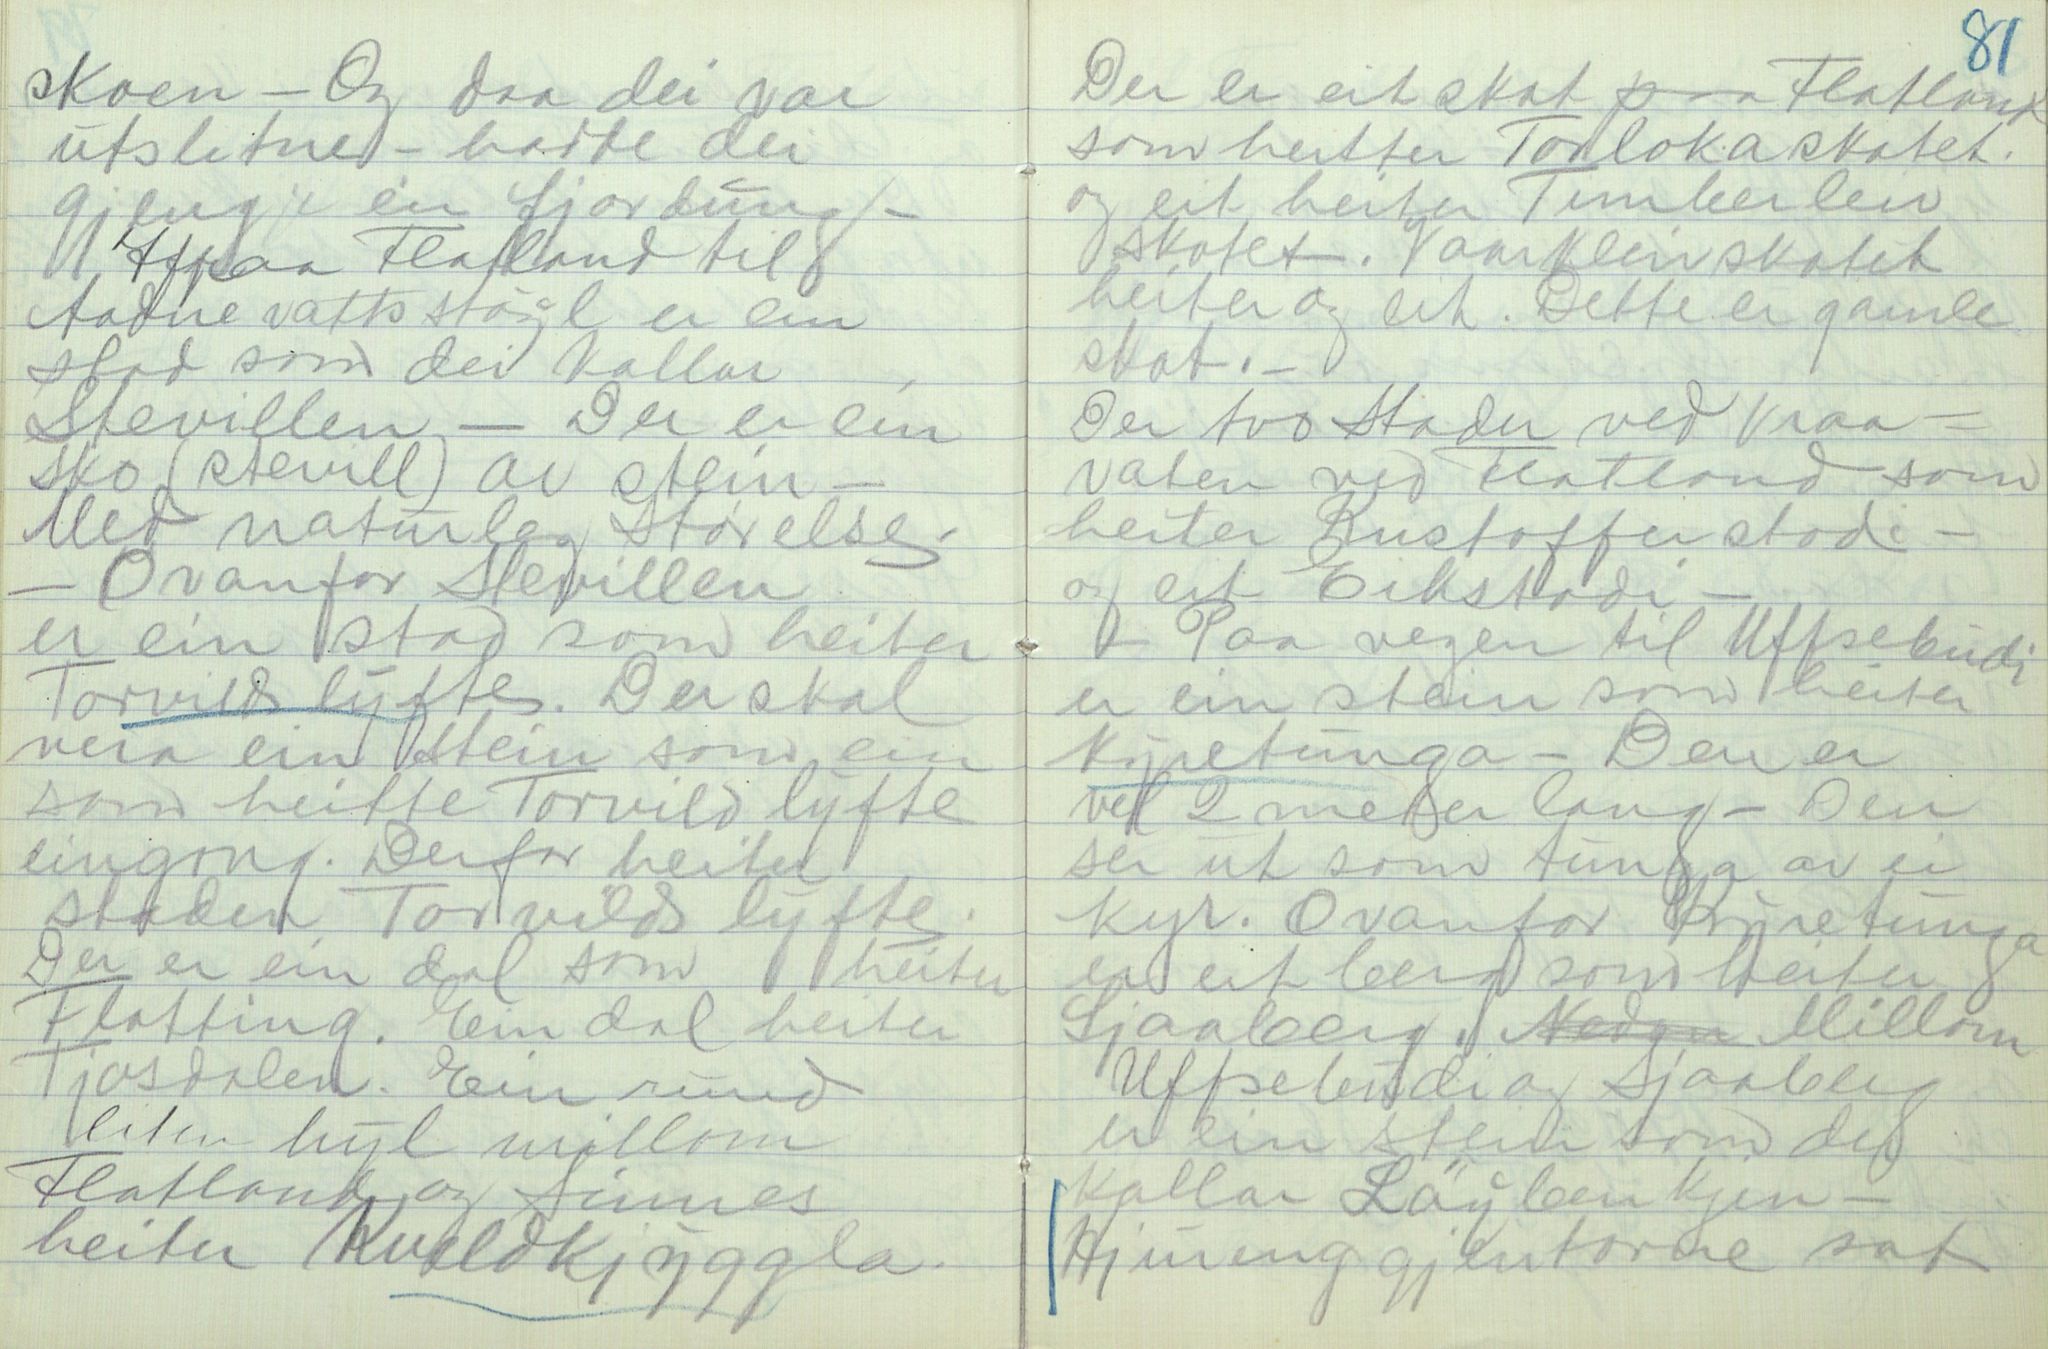 skoen – Og daa dei var
utslitne – hadde dei
gjengi ein fjordung –
Uppaa Flatland til
Aadnevatts støyl er ein
stad som dei kallar
Stevillen – Der er ein
sko (stevill) av stein –
Med naturleg Størelse.
– Ovanfor Stevillen
er ein stad som heiter
Torvilds lyfte. Der skal
vera ein stein som ein
som heitte Torvild lyfte
eingong. Derfor heiter
staden Torvilds lyfte.
Der er ein dal som heiter
Flotting. Ein dal heiter
Tjosdalen. Ein rund
liten hyl millom
Flatland og Sinnes
heiter Kveldkjyggla.
81
Der er eit skot paa Flatland
som heitter Torlokaskotet.
og eit heiter Timberlein
skotet. Vaarkleivskotet
heiter og eit. Dette er gamle
skot. –
Der tvo Stader ved Kraa–
vaten ved Flatland som
heiter Kristofferstodi –
og eit Eikstodi –
– Paa vegen til Uppsebudi
er ein stein som heiter
Kyretunga – Den er
vel 2 meter lang – Den
ser ut som tunga av ei
kyr. Ovanfor Kyretunga
er eit berg som heiter
Sjaaberg. Nedan Millom
Uppsebudi og Sjaaberg
er ein stein som dei
kallar Løybenkjen –
Hjuringgjentorne sat